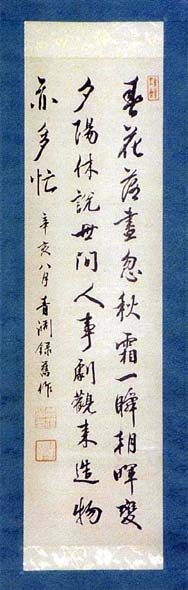 春花落盡忽秋霜一瞬朝暉變
夕陽休說世間人事劇觀来造物
亦多忙 辛亥八月 青渊録舊作